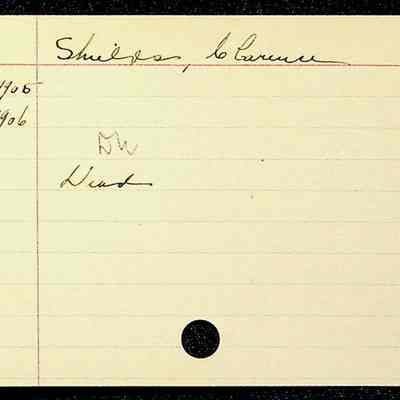 Shields, Clarence
1905
1906
DW
Dead